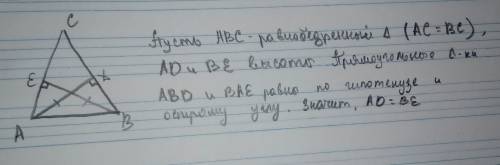 C
E
L
A
B
Пусть ABC - равнобедренный Δ (AC = BC),
AD и BE высоты Прямоугольного Δ-ки
ABD и BAE равно по гипотенузе и
острому углу. Значит, AD = BE